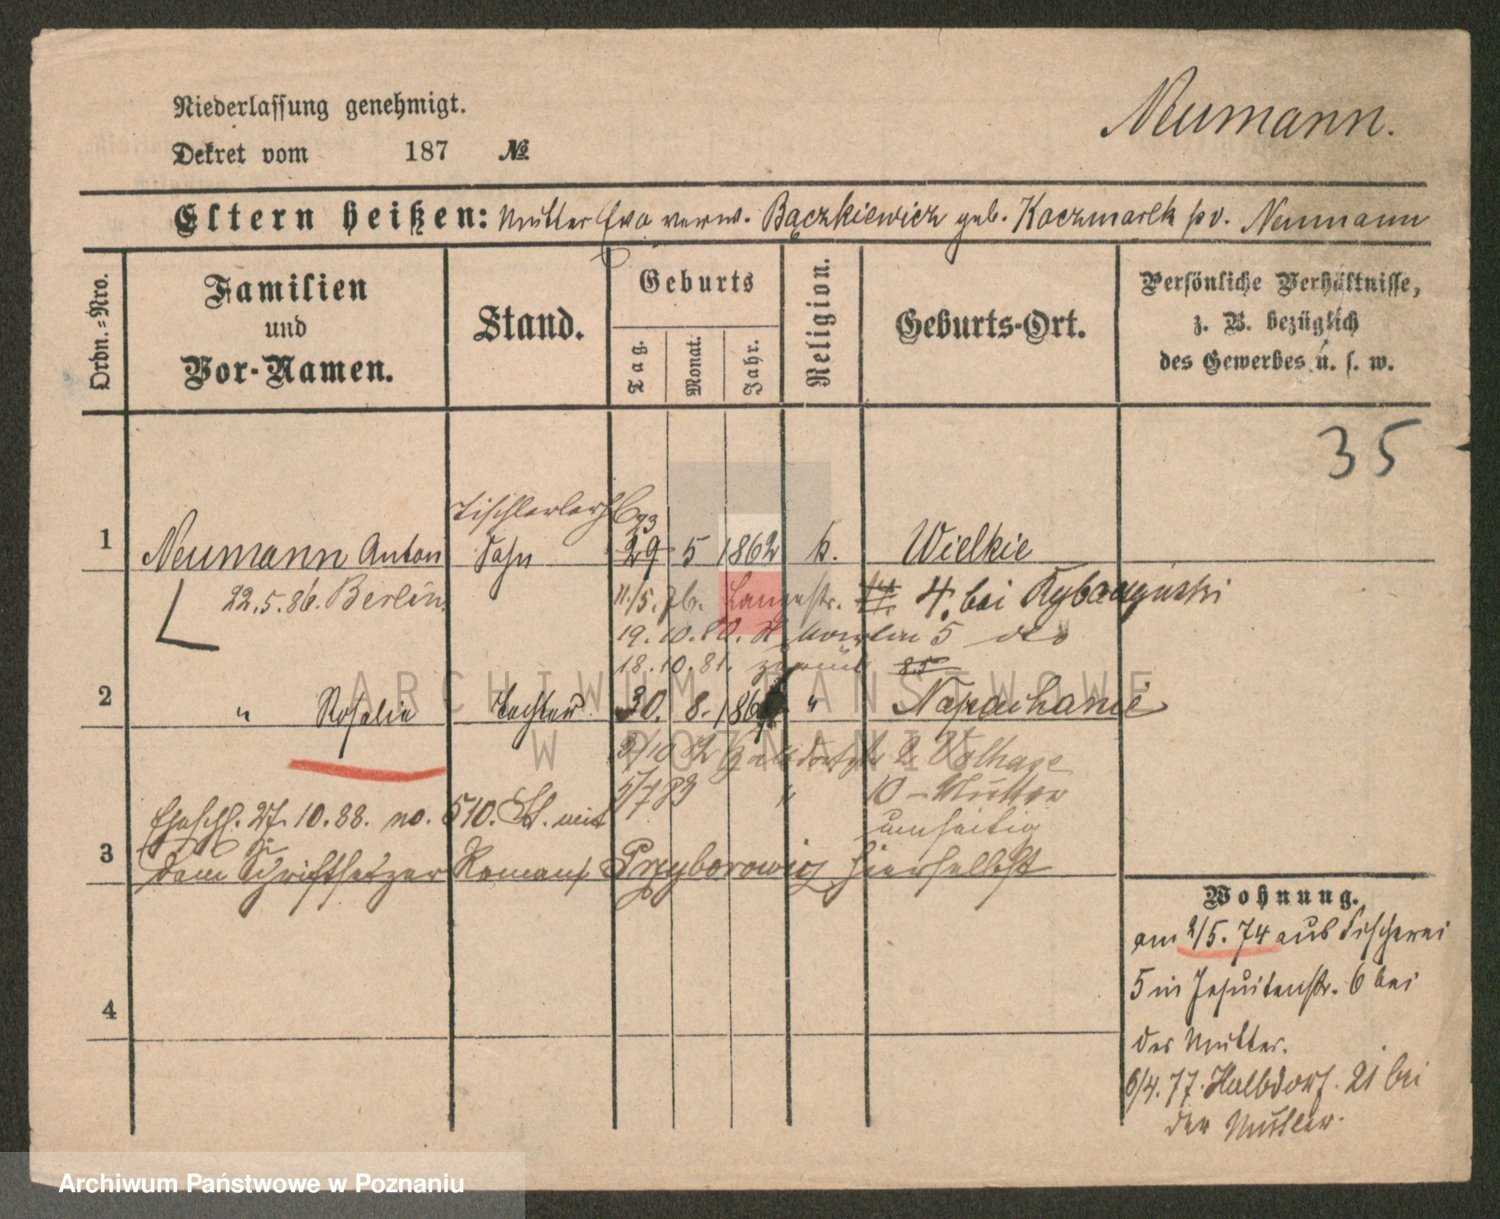 Niederlassung genehmigt.
Neumann.
Dekret vom 187 №
Eltern heißen: Mutter Eva verw. Bączkiewicz geb. Kaczmarek pv. Neumann
Ordn.=Nro.
Familien
und
Vor-Namen.
Stand.
Geburts
Tag.
Monat.
Jahr.
Religion.
Geburts-Ort.
Persönliche Verhältnisse,
z. B. bezüglich
des Gewerbes u. s. w.
35
Tischlerlehrl
23
1 Neumann Anton Sohn 29 5 1862 k. Wielkie
22.5.86. Berlin
11/5. 76. Langestr. 4. bei
19.10.80. 5
18.10.81. zurück 85
2 " Rosalie Tochter 30. 8. 186 " Napachanie
2/10 82 Halbdorfstr 2
5/7 83 " 10 - Mutter
umseitig
Eheschl. 27.10.88. no. 510. St. mit
3 dem Schriftsetzer Roman Przyborowicz hierselbst
4
Wohnung.
am 2/5. 74 aus Fischerei
5 in Jesuitenstr. 6 bei
der Mutter.
6/4. 77. Halbdorf. 21 bei
der Mutter.
ARCHIWUM PAŃSTWOWE
W POZNANIU
Archiwum Państwowe w Poznaniu